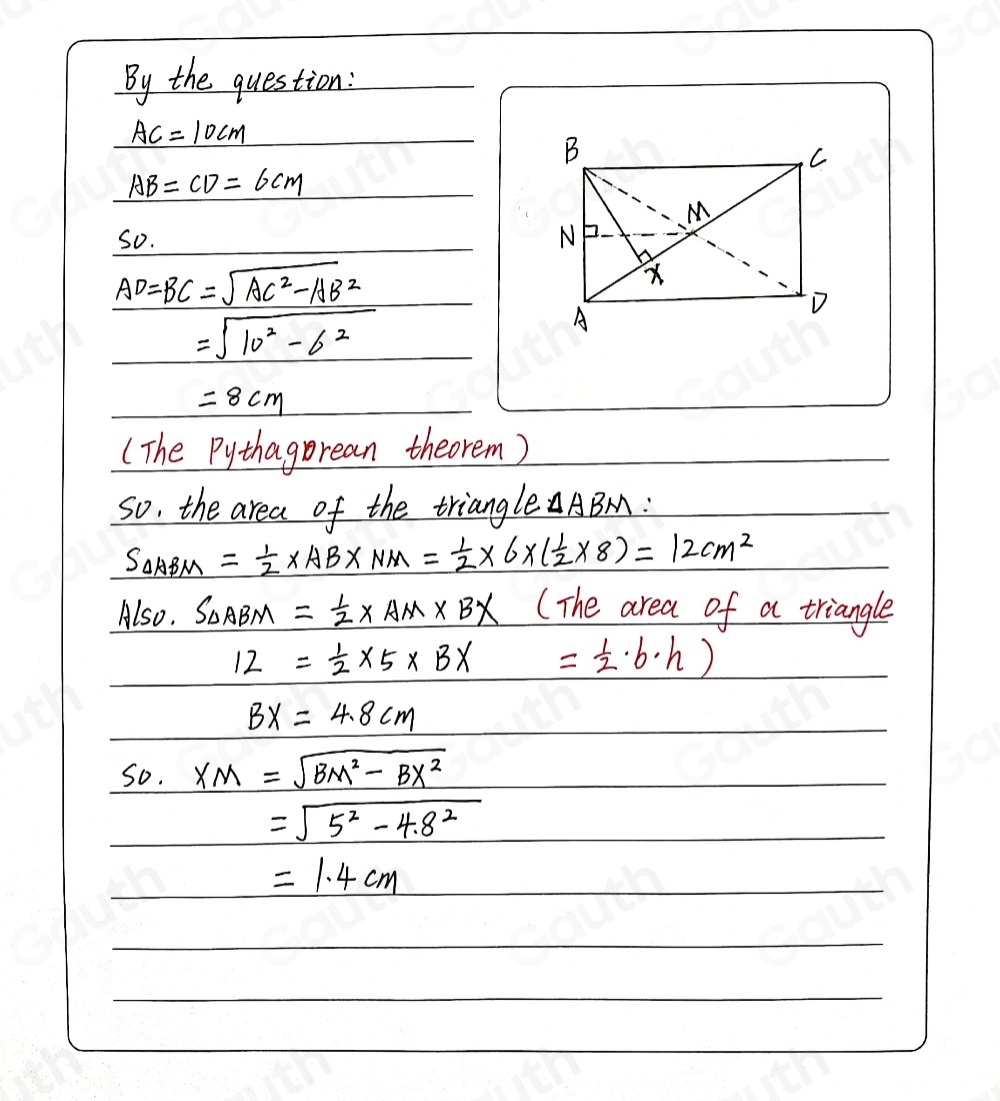 By the question:
AC = 10cm
AB = CD = 6cm
so.
AD=BC = √AC²-AB²
= √10² - 6²
= 8cm
(The Pythagorean theorem)
so. the area of the triangle ΔABM:
SΔABM = 1/2 × AB × NM = 1/2 × 6 × (1/2 × 8) = 12cm²
Also. SΔABM = 1/2 × AM × BX (The area of a triangle
12 = 1/2 × 5 × BX = 1/2·b·h)
BX = 4.8cm
so. XM = √BM² - BX²
= √5² - 4.8²
= 1.4cm
B
C
M
N
X
A
D
Gauth